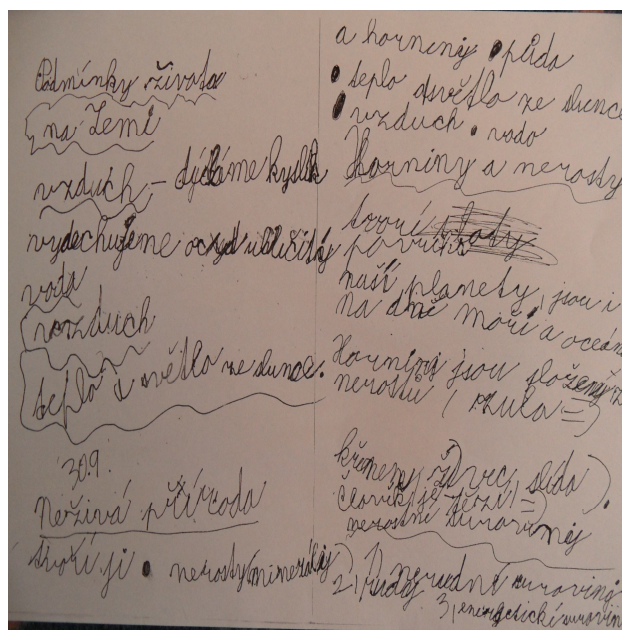 Podmínky života
na Zemi
vzduch - dýcháme kyslík
vydechujeme oxyd uhličitý
voda
vzduch
teplo a světlo ze slunce.
30.9.
Neživá příroda
tvoří ji • nerosty (minerály)
a horniny • půda
• teplo a světlo ze slunce
• vzduch • voda
Horniny a nerosty
tvoří
povrch
naší planety, jsou i
na dně moří a oceán
Horniny jsou složeny z
nerostů (žula =)
křemen, živec, slída).
Člověk je těží =)
nerostné suroviny
1) nerudné suroviny
2) rudy
3, energetické surovin